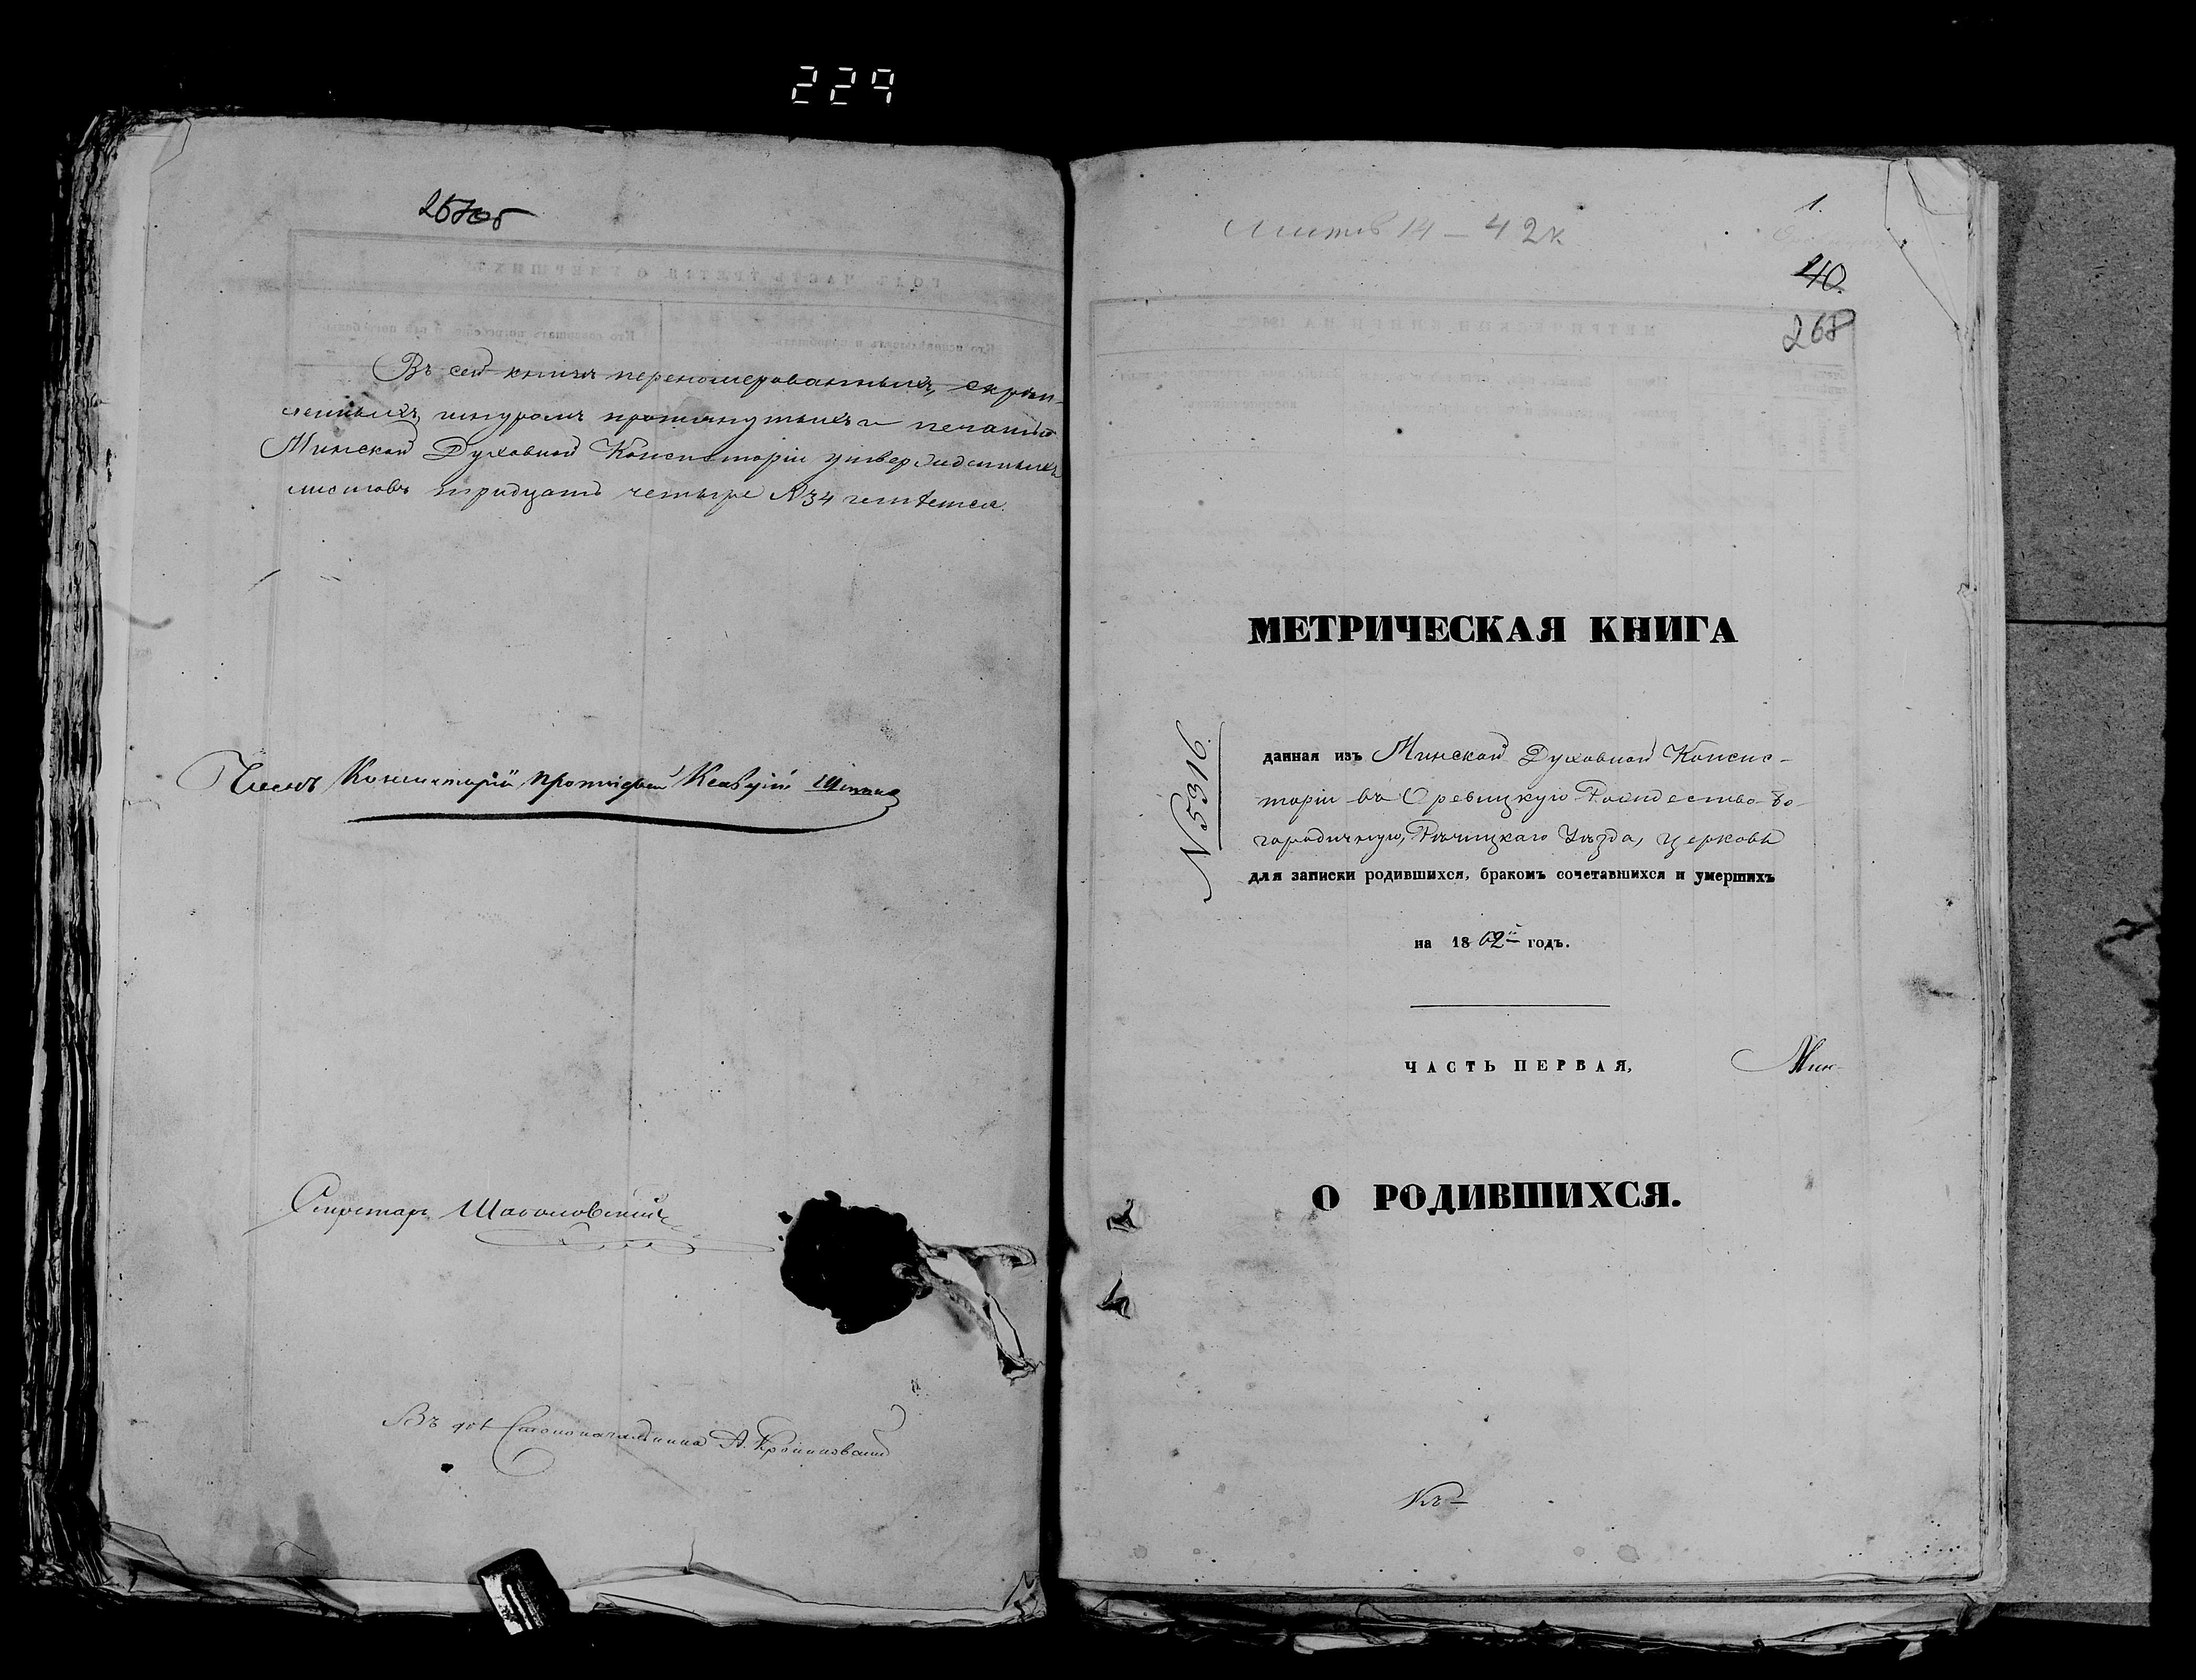 229
267об
Въ сей книгѣ перенумерованныхъ, скрѣп-
ленныхъ шнуромъ протянутыхъ и печатью
Минской Духовной Консисторіи утвержденныхъ
листовъ тридцать четыре №34 числится.
Членъ Консисторіи, протоіерей
Секретарь
Въ дол. Столоначальника А.
1.
Листов 14 - 42к
40
268
МЕТРИЧЕСКАЯ КНИГА
№5316.
данная изъ Минской Духовной Консис-
торіи въ Оревицкую Рождество-Бо-
городичную, Рѣчицкаго Уѣзда, церковь
для записки родившихся, бракомъ сочетавшихся и умершихъ
на 1862й годъ.
ЧАСТЬ ПЕРВАЯ,
Мин-
О РОДИВШИХСЯ.